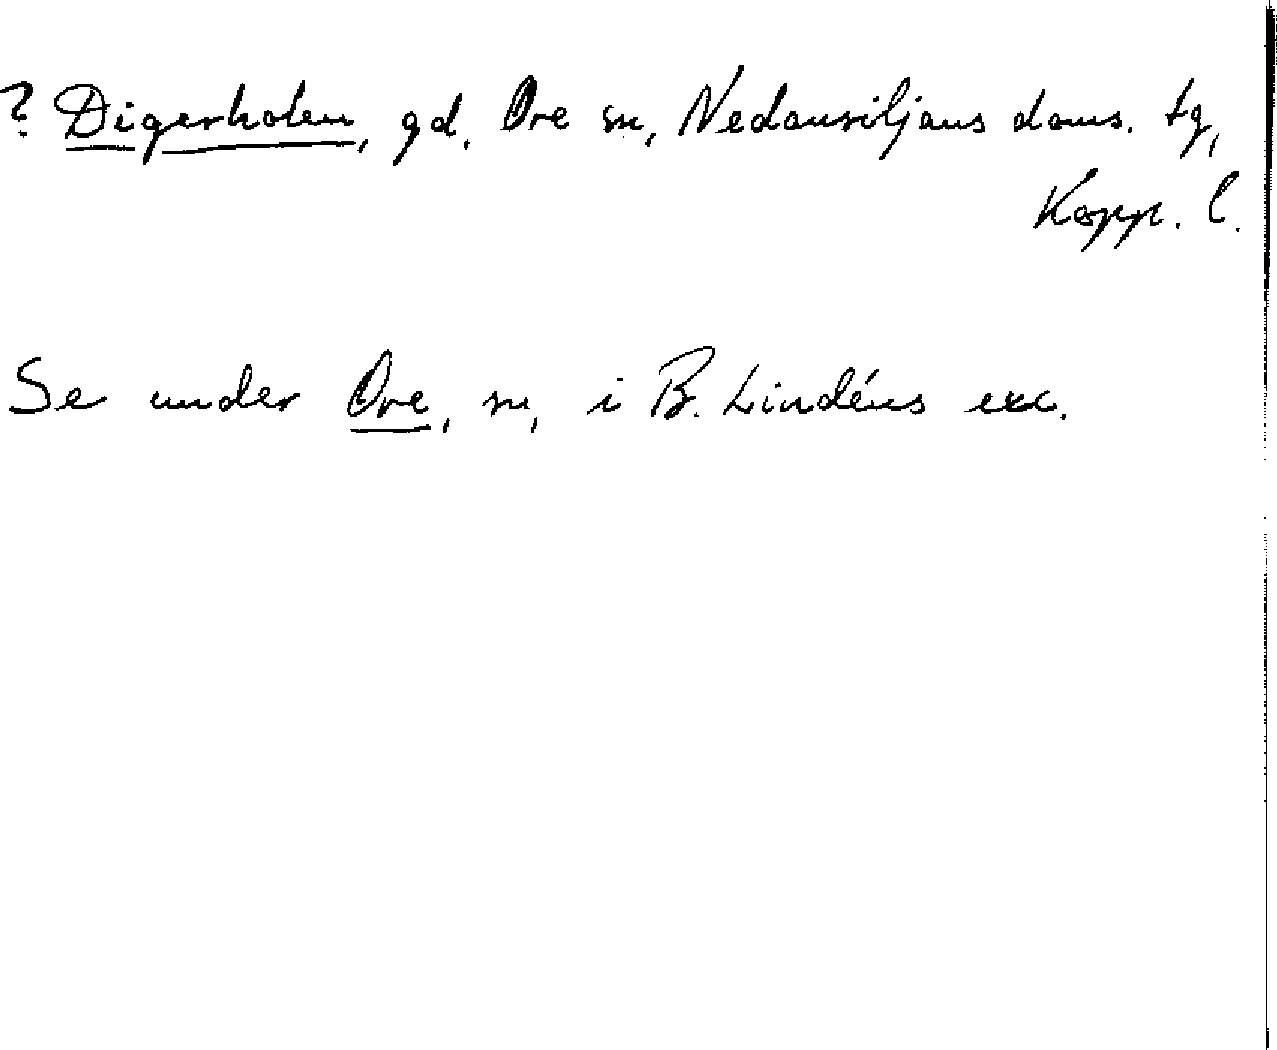 ? Digerholen, gd, Ore sn, Nedansiljans doms. tg,
Kopp. l.
Se under Ore, sn, i B. Lindéns exc.